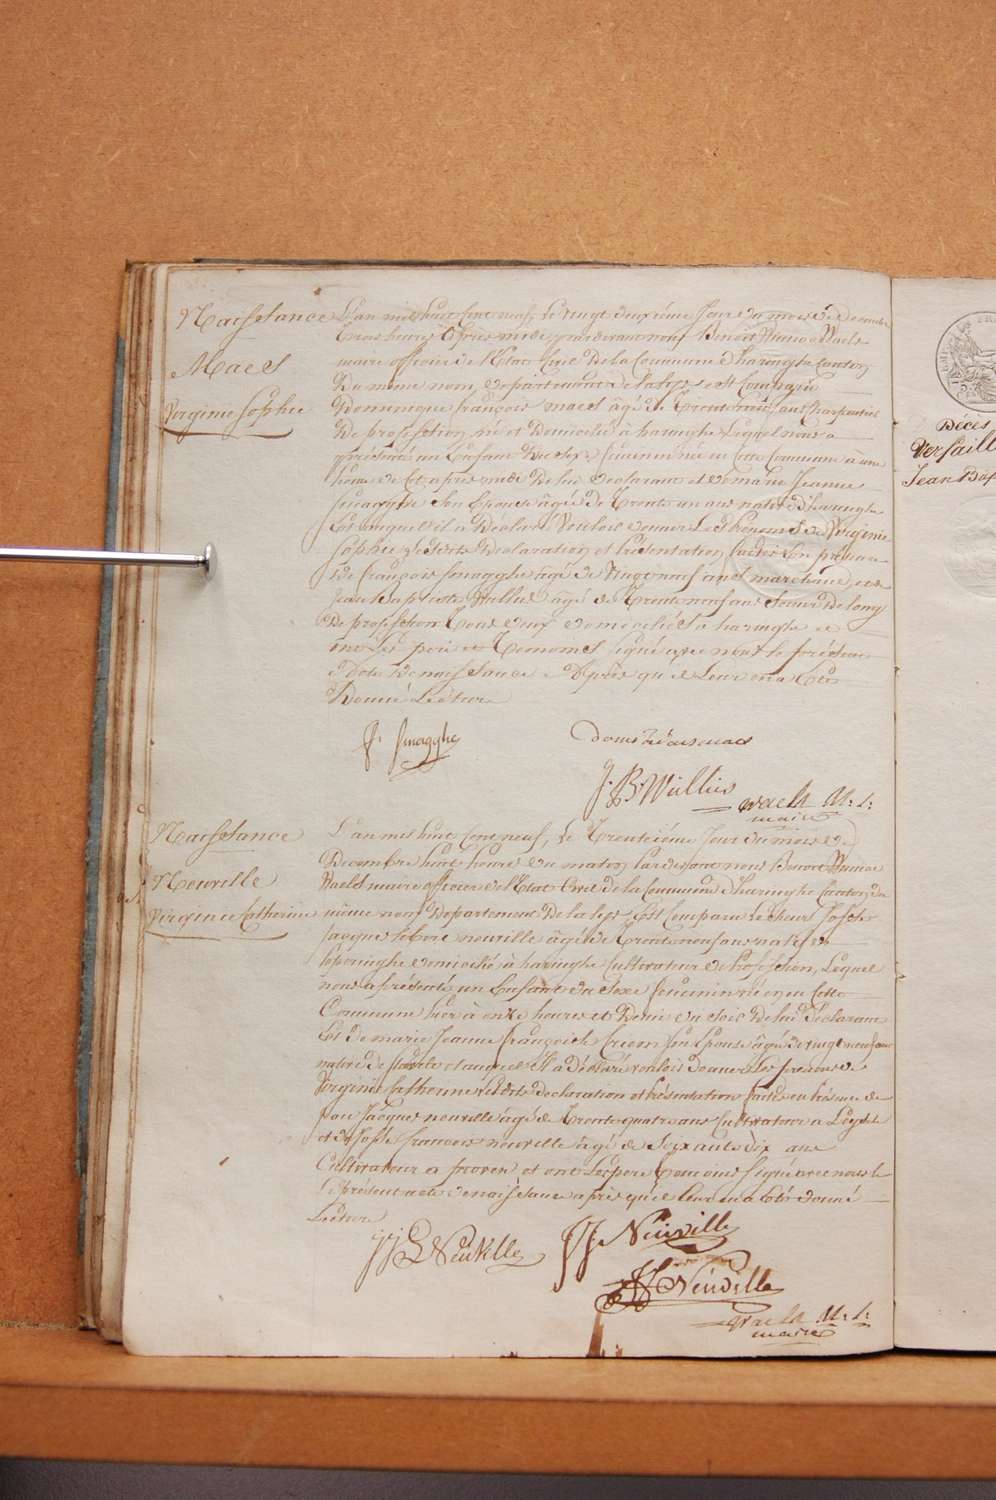 Naissance
Maes
Virginie Sophie
L'an mil huit cent neuf, le vingt deuxieme Jour du mois de Decembre
trois heures après midi, pardevant nous Benoit Winoc Waels
maire officier de l'Etat Civil De la Commune d'haringhe Canton
Du même nom, departement de la lys est Comparu
Dominique françois maes âgé de Trente trois ans Charpentier
De profession né et Domicilié à haringhe Lequel nous a
présenté un Enfant du Sexe feminin née en Cette Commune à une
heure de cet après midi De lui declarant et de marie Jeanne
Smagghe Son Epouse âgée de Trente un ans native d'haringhe
Et auquel il a Declaré Vouloir donner Les prénoms de Virginie
Sophie, Lesdites Declaration et Présentation faites En présence
De françois Smagghe âgé de Vingt neuf ans marchand, et de
Jean baptiste Wullus âgé de Trente neuf ans
De profession Tous deux domiciliés a haringhe et
ont Les pere et Temoins Signé avec nous le présent
Acte De naissance Après qu'il Leur en a Eté
Donné Lecture
f. Smagghe
J. B. Wullus
waels M: t:
maire
Naissance
Neuville
Virginie Catherine
L'an mil huit Cent neuf, le Trentième Jour du mois de
Decembre huit heures du matin Pardevant nous Benoit Winoc
Waels maire officier de l'Etat Civil de la Commune d'haringhe Canton du
même nom Departement De la lys, Est Comparu Le Sieur Joseph
Jacque neuville âgé de Trente neuf ans natif de
poperinghe domicilié à haringhe Cultivateur de Profession, Lequel
nous a présenté un Enfant du Sexe feminin née en Cette
Commune hier à onze heures et Demie du soir De lui Déclarant
Et De marie Jeanne françoise Son Epouse âgée de vingt neuf ans
native de et auquel Il a Déclaré vouloir donner Les prénoms de
Virginie Catherine Lesdites declaration et Présentation faites en présence de
Jean Jacques neuville âgé de Trente quatre ans Cultivateur a
et de Joseph françois neuville âgé de Soixante dix ans
Cultivateur a proven et ont Les pere Temoins Signé avec nous le
présent acte de naissance après qu'il Leur en a Eté donné
Lecture
JJL Neuville
JJ Neuville
JF Neuville
waels M: t:
maire
Décès
Versaill
Jean Bap